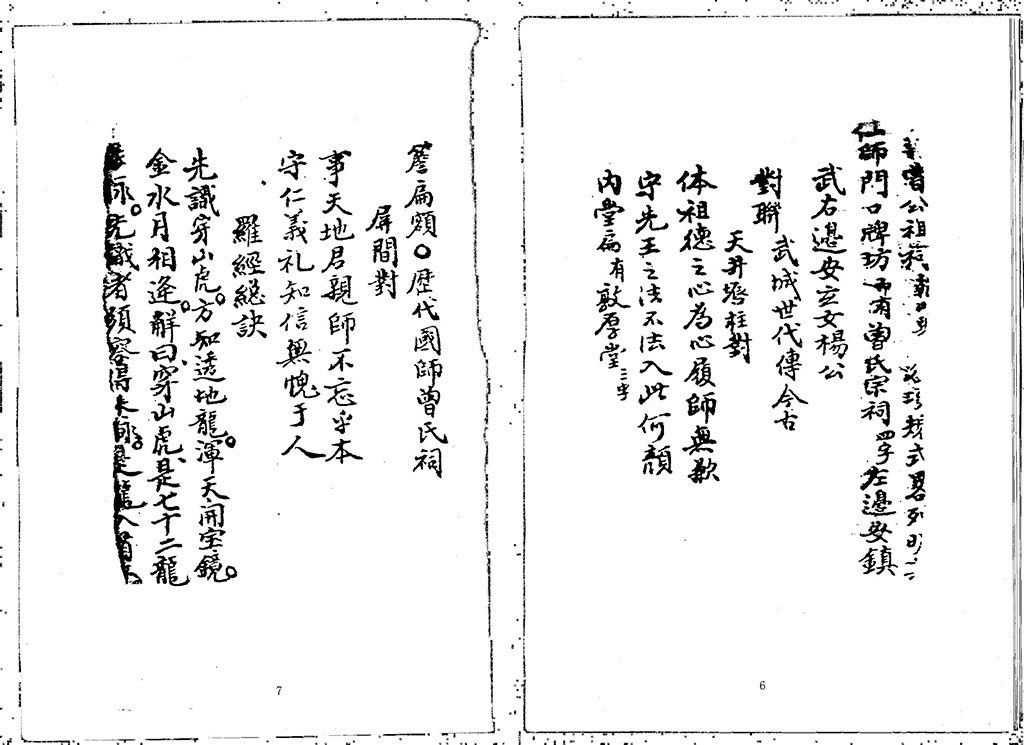 曾公祖祠
式畧列
仕師門口牌坊而有曾氏宗祠四字左邊安鎮
武右邊安立文楊公
對聯
武城世代傳今古
天井启柱對
体祖德之心為心履師無歉
守先王之法不法入此何顔
内堂扁有敦厚堂三字
6
扁額歷代國師曾氏祠
屏間對
事天地君親師不忘乎本
守仁義礼知信無愧于人
羅經總訣
先識穿山虎。方知透地龍。渾天開宝鏡。
金水月相逢。解曰、穿山虎、是七十二龍
脉。先識者須
7